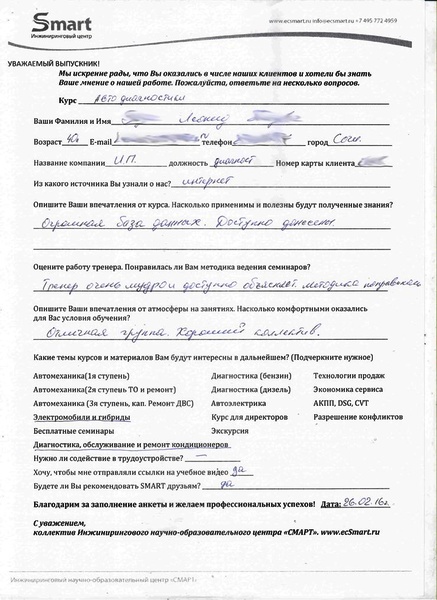 Smart
Инжиниринговый центр
www.ecsmart.ru info@ecsmart.ru +7 495 772 4959
УВАЖАЕМЫЙ ВЫПУСКНИК!
Мы искренне рады, что Вы оказались в числе наших клиентов и хотели бы знать
Ваше мнение о нашей работе. Пожалуйста, ответьте на несколько вопросов.
Курс Авто диагностики
Ваши Фамилия и Имя Леонид
Возраст 40л E-mail телефон город Сочи.
Название компании И.П. должность диагност Номер карты клиента
Из какого источника Вы узнали о нас? интернет
Опишите Ваши впечатления от курса. Насколько применимы и полезны будут полученные знания?
Огромная база данных. Доступно донесены.
Оцените работу тренера. Понравилась ли Вам методика ведения семинаров?
Тренер очень мудро и доступно объясняет. методика понравилась
Опишите Ваши впечатления от атмосферы на занятиях. Насколько комфортными оказались
для Вас условия обучения?
Отличная группа. Хороший коллектив.
Какие темы курсов и материалов Вам будут интересны в дальнейшем? (Подчеркните нужное)
Автомеханика(1я ступень) Диагностика (бензин) Технологии продаж
Автомеханика(2я ступень ТО и ремонт) Диагностика (дизель) Экономика сервиса
Автомеханика (3я ступень, кап. Ремонт ДВС) Автоэлектрика АКПП, DSG, CVT
Электромобили и гибриды Курс для директоров Разрешение конфликтов
Бесплатные семинары Экскурсия
Диагностика, обслуживание и ремонт кондиционеров
Нужно ли содействие в трудоустройстве? —
Хочу, чтобы мне отправляли ссылки на учебное видео да
Будете ли Вы рекомендовать SMART друзьям? да
Благодарим за заполнение анкеты и желаем профессиональных успехов! Дата: 26.02.16г.
С уважением,
коллектив Инжинирингового научно-образовательного центра «СМАРТ». www.ecSmart.ru
Инжиниринговый научно-образовательный центр «СМАРТ»